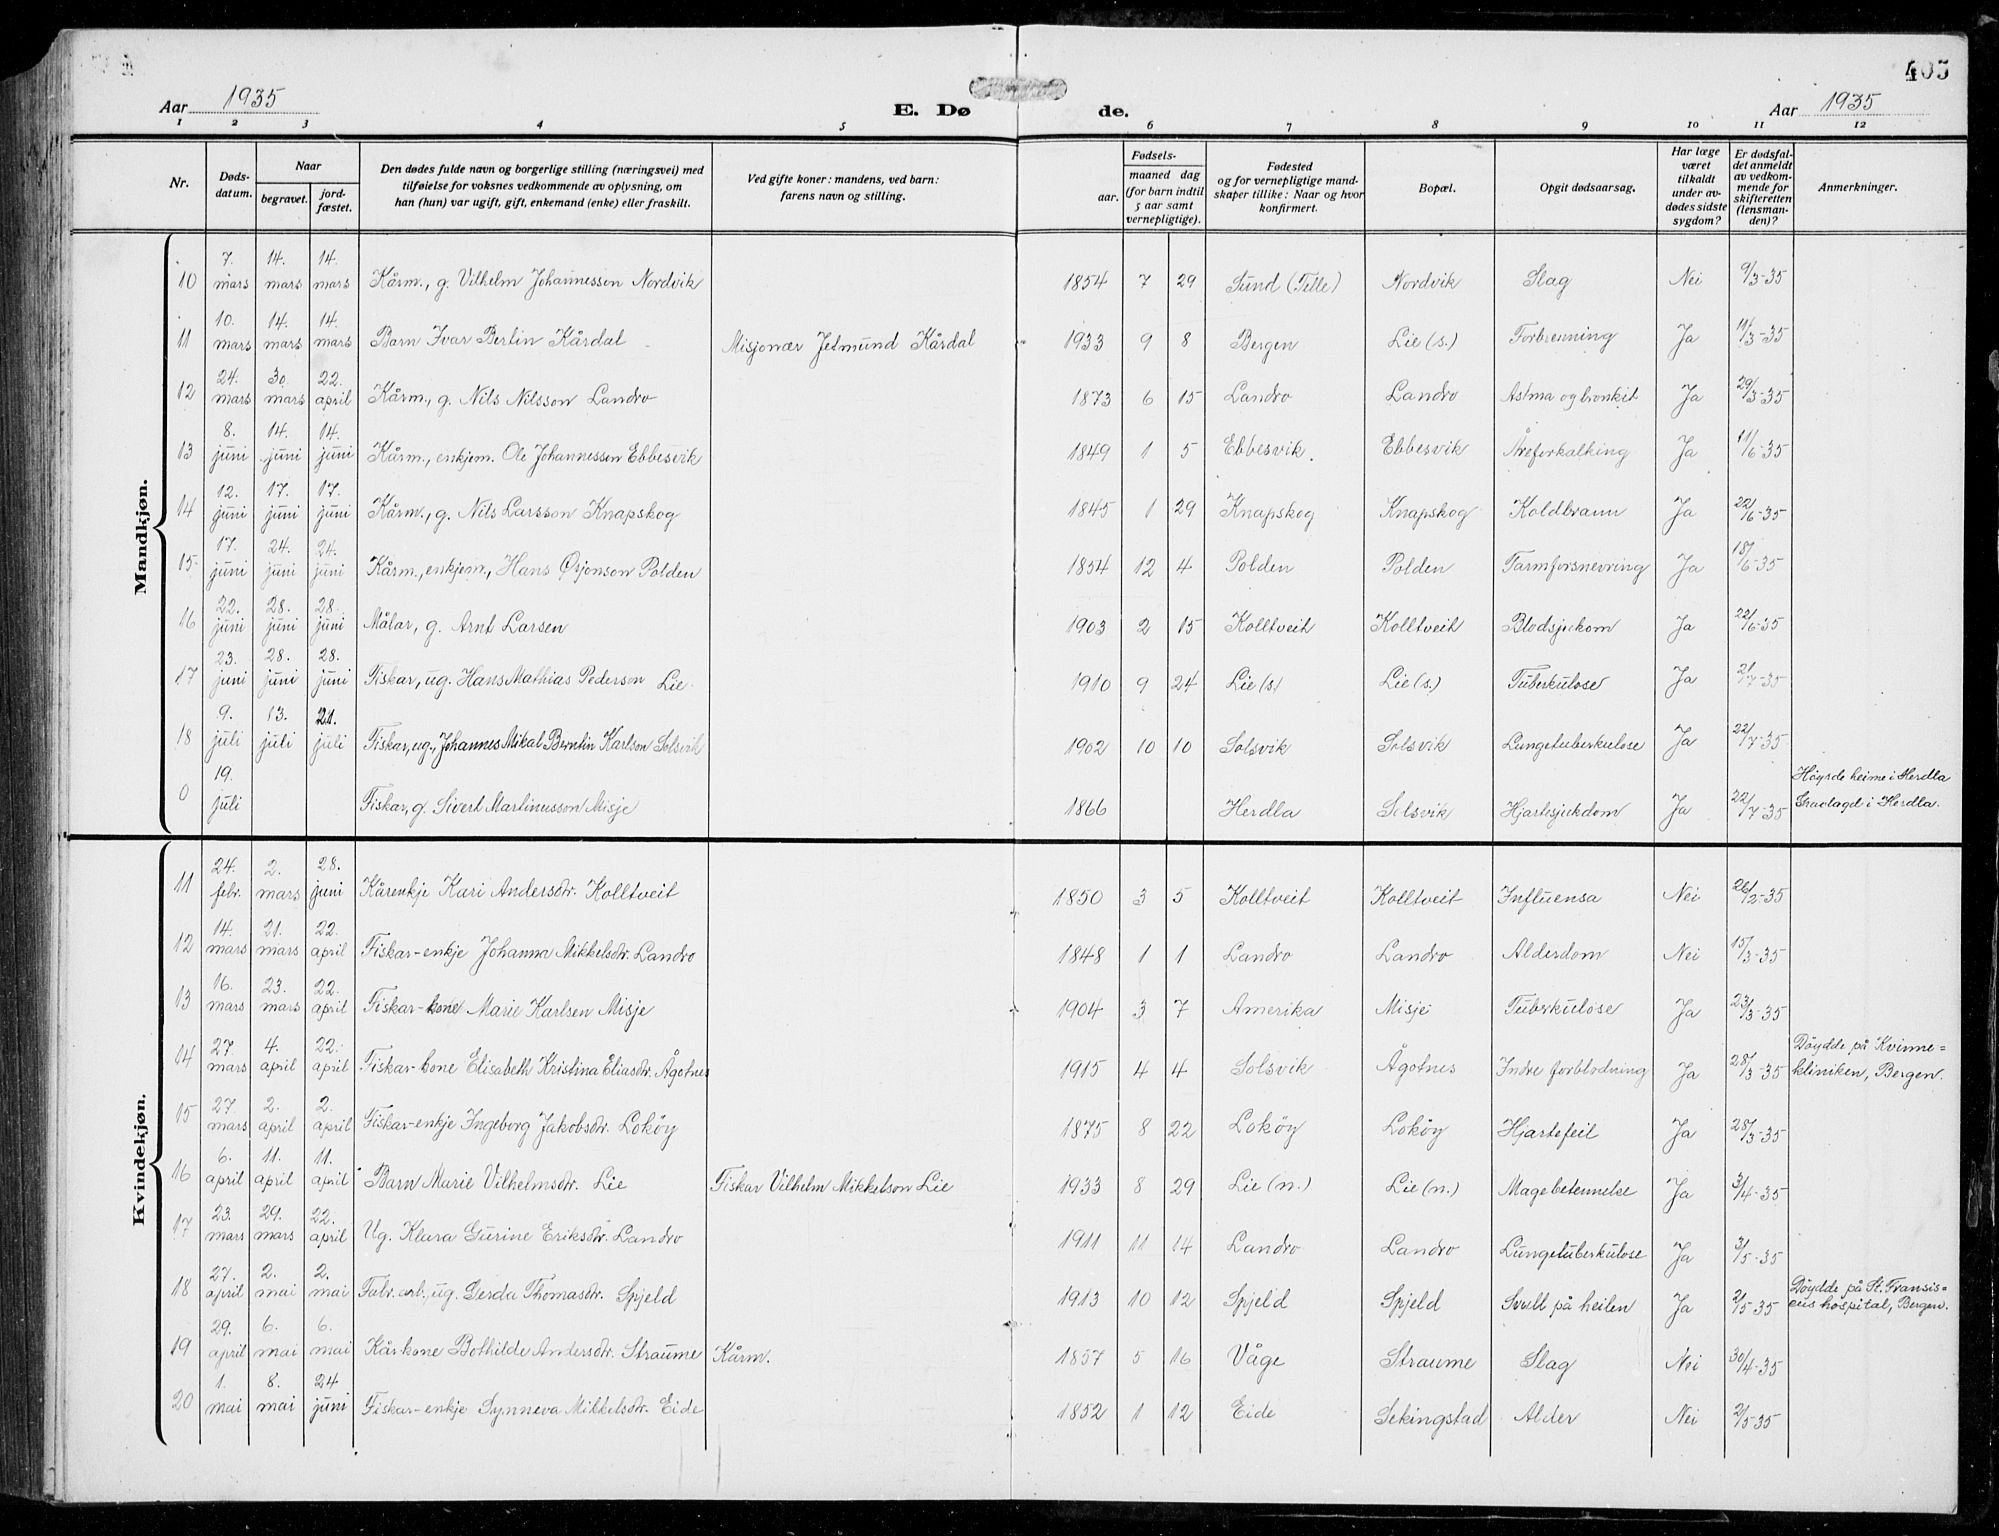 405
Aar 1935
E. Dø
de.
Aar 1935
1 2 3 4 5 6 7 8 9 10 11 12
Nr.
Døds-
datum.
Naar
begravet.
jord-
fæstet.
Den dødes fulde navn og borgerlige stilling (næringsvei) med
tilføielse for voksnes vedkommende av oplysning, om
han (hun) var ugift, gift, enkemand (enke) eller fraskilt.
Ved gifte koner: mandens, ved barn:
farens navn og stilling.
Fødsels-
aar.
maaned dag
(for barn indtil
5 aar samt
vernepligtige).
Fødested
og for vernepligtige mand-
skaper tillike: Naar og hvor
konfirmert.
Bopæl.
Opgit dødsaarsag.
Har læge
været
tilkaldt
under av-
dødes sidste
sygdom?
Er dødsfal-
det anmeldt
av vedkom-
mende for
skifteretten
(lensman-
den)?
Anmerkninger.
Mandkjøn.
10 7. mars 14. mars 14. mars Kårm., g. Vilhelm Johannessen Nordvik 1854 7 29 Sund (Telle) Nordvik Slag Nei 9/3-35
11 10. mars 14. mars 14. mars Barn Ivar Berlin Kårdal Misjonær Jetmund Kårdal 1933 9 8 Bergen Lie (s.) Forbrenning Ja 11/3-35
12 24. mars 30. mars 22. april Kårm., g. Nils Nilsson Landro 1873 6 15 Landro Landro Astma og bronkit Ja 29/3-35
13 8. juni 14. juni 14. juni Kårm., enkjem. Ole Johannessen Ebbesvik 1849 1 5 Ebbesvik Ebbesvik Åreforkalking Ja 11/6-35
14 12. juni 17. juni 17. juni Kårm., g. Nils Larsson Knapskog 1845 1 29 Knapskog Knapskog Koldbrann Ja 22/6-35
15 17. juni 24. juni 24. juni Kårm., enkjem., Hans Øsjonson Polden 1854 12 4 Polden Polden Tarmforsnevring Ja 18/6-35
16 22. juni 28. juni 28. juni Målar, g. Arnt Larsen 1903 2 15 Kolltveit Kolltveit Blodsjukom Ja 22/6-35
17 23. juni 28. juni 28. juni Fiskar, ug. Hans Mathias Pederson Lie 1910 9 24 Lie (s) Lie (s.) Tuberkulose Ja 2/7-35
18 9. juli 13. juli 21. juli Fiskar, ug., Johannes Mikal Berntin Karlson Solsvik 1902 10 10 Solsvik Solsvik Lungetuberkulose Ja 22/7-35
0 19. juli Fiskar, g. Sivert Martinusson Misje 1866 Herdla Solsvik Hjartesjukdom Ja 22/7-35 Høyrde heime i Herdla
Gravlagd i Herdla.
Kvindekjøn.
11 24. febr. 2. mars 28. juni Kårenkje Kari Andersdr. Kolltveit 1850 3 5 Kolltveit Kolltveit Influensa Nei 26/2-35
12 14. mars 21. mars 22. april Fiskar-enkje Johanna Mikkelsdr. Landro 1848 1 1 Landro Landro Alderdom Nei 15/3-35
13 16. mars 23. mars 22. april Fiskar-kone Marie Karlsen Misje 1904 3 7 Amerika Misje Tuberkulose Ja 23/3-35
14 27. mars 4. april 22. april Fiskar-kone Elisabeth Kristina Eliasdr. Ågotnes 1915 4 4 Solsvik Ågotnes Indre forblodning Ja 28/3-35 Døydde på Kvinne=
kliniken, Bergen.
15 27. mars 2. april 2. april Fiskar-enkje Ingeborg Jakobsdr. Lokøy 1875 8 22 Lokøy Lokøy Hjartefeil Ja 28/3-35
16 6. april 11. april 11. april Barn Marie Vilhelmsdr. Lie Fiskar Vilhelm Mikkelson Lie 1933 8 29 Lie (n.) Lie (n.) Magebetennelse Ja 3/4-35
17 23. mars 29. mars 22. april Ug. Klara Gurine Eriksdr. Landro 1911 11 14 Landro Landro Lungetuberkulose Ja 3/5-35
18 27. april 2. mai 2. mai Fabr. arb., ug. Gerda Thomasdr. Spjeld 1913 10 12 Spjeld Spjeld Svull på heilen Ja 2/5-35 Døydde på St. Fransis=
cus hospital, Bergen.
19 29. april 6. mai 6. mai Kårkone Bothilde Andersdr. Straume Kårm. 1857 5 16 Våge Straume Slag Nei 30/4-35
20 1. mai 8. mai 24 juni Fiskar-enkje Synneva Mikkelsdr. Eide 1852 1 12 Eide Sekingstad Alder Nei 2/5-35